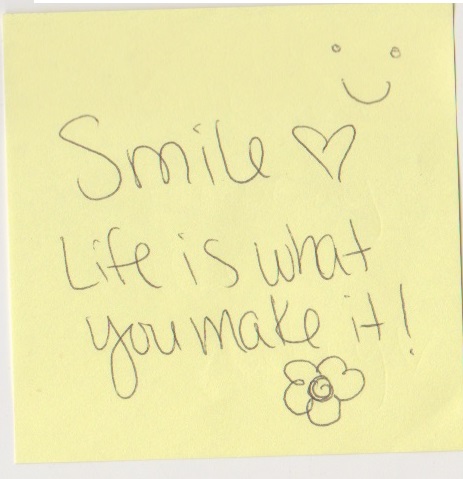 Smile ♡
Life is what
you make it!